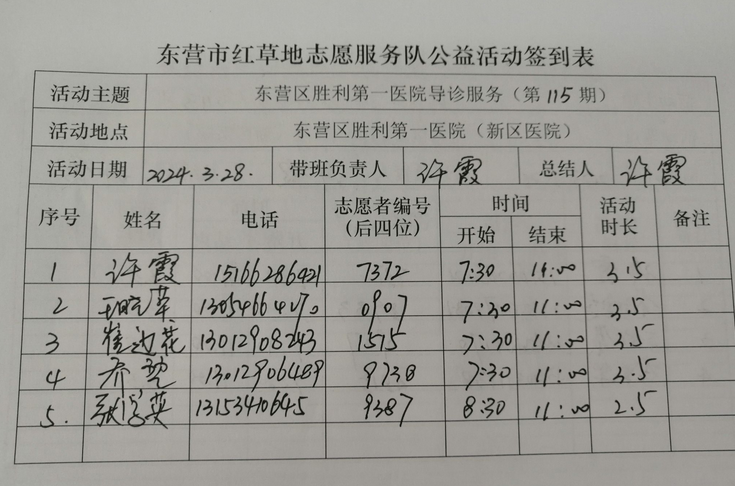 东营市红草地志愿服务队公益活动签到表
活动主题 东营区胜利第一医院导诊服务（第115期）
活动地点 东营区胜利第一医院（新区医院）
活动日期 2024.3.28. 带班负责人 许霞 总结人 许霞
序号 姓名 电话 志愿者编号（后四位） 时间 开始 结束 活动时长 备注
1 许霞 15166286421 7372 7:30 11:00 3.5
2 13054664070 0907 7:30 11:00 3.5
3 13012908243 1515 7:30 11:00 3.5
4 乔 13012906489 9738 7:30 11:00 3.5
5. 张学英 13153410645 9387 8:30 11:00 2.5